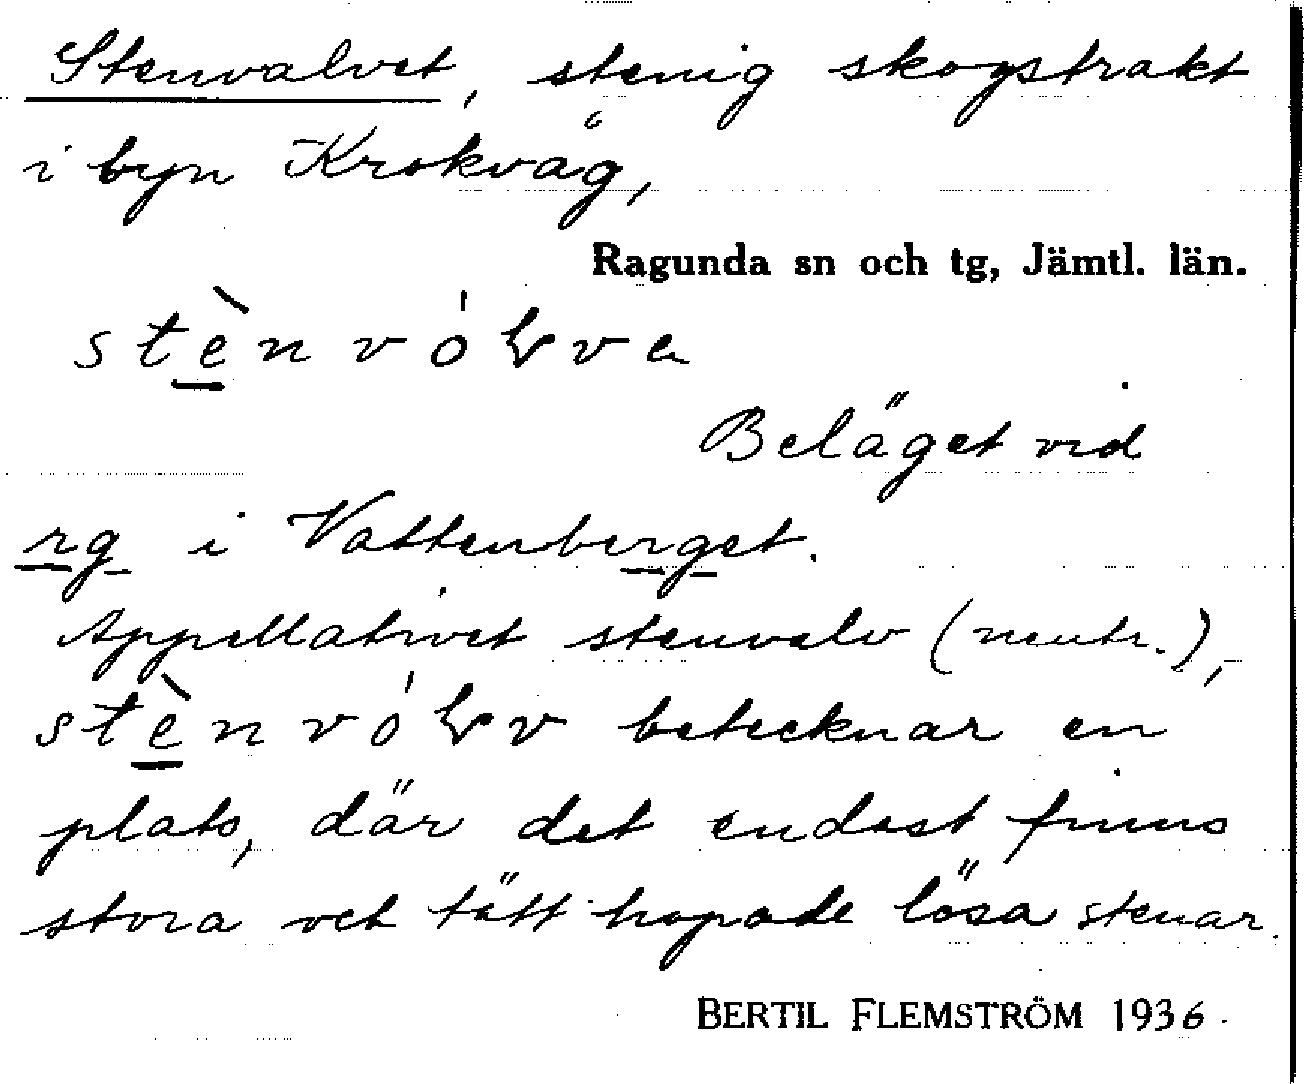 Stenvalvet, stenig skogstrakt
i byn Krokvåg,
Ragunda sn och tg, Jämtl. län.
Beläget vid
rg i Vattenberget.
Appellativet stenvalv (neutr.),
betecknar en
plats, där det endast finns
stora tätt hopade lösa stenar.
BERTIL FLEMSTRÖM 1936.